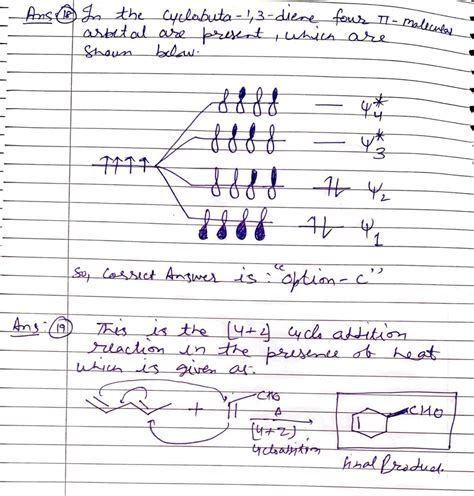 Ans (18) In the cyclobuta-1,3-diene, four π-molecular
orbital are present, which are
shown below.
ψ4*
ψ3*
ψ2
ψ1
So, correct Answer is : "option-c"
Ans:- (19) This is the [4+2] cyclo addition
reaction in the presence of heat
which is given as:
+ CHO
Δ
[4+2]
cycloaddition
CHO
final product.